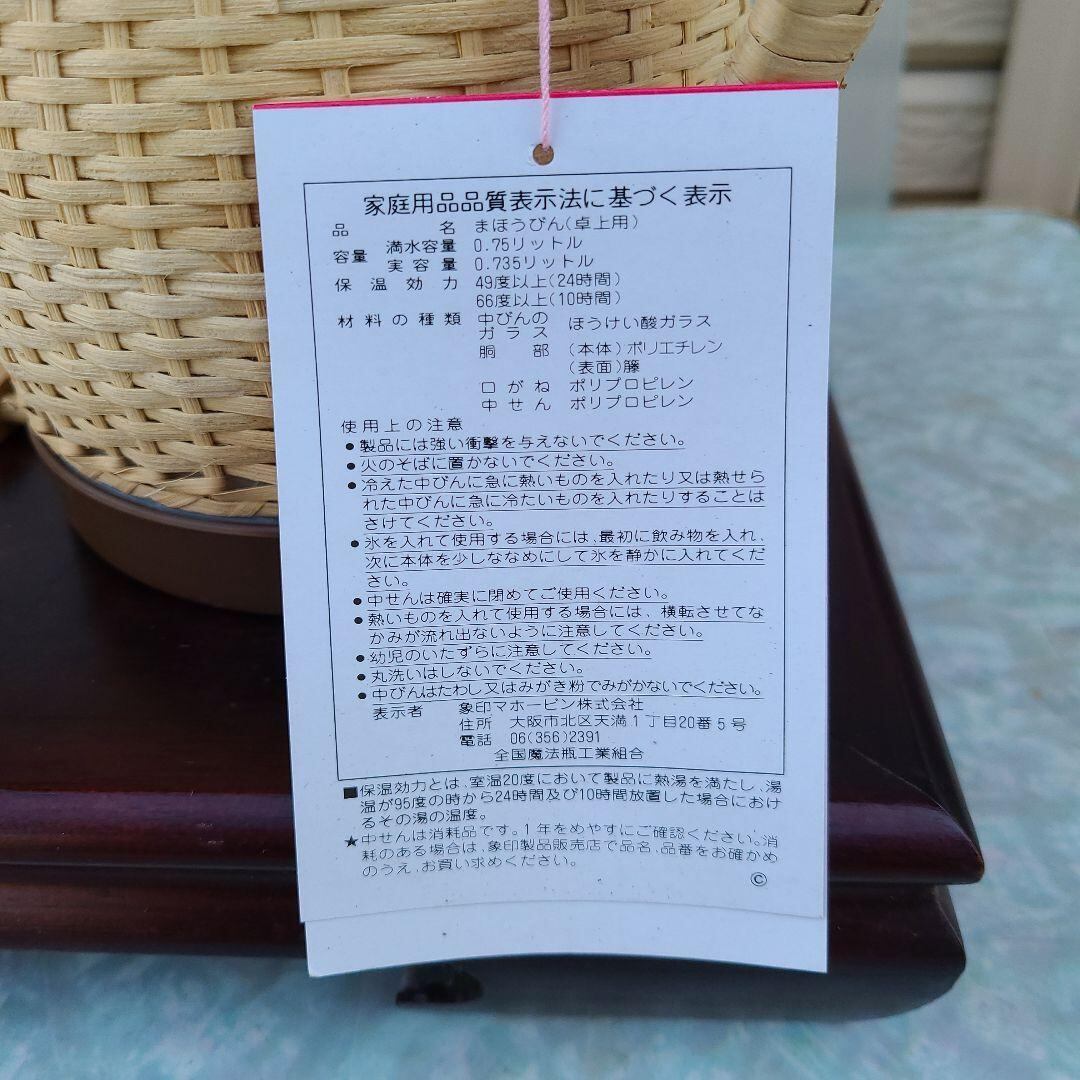 家庭用品品質表示法に基づく表示
品名 まほうびん(卓上用)
容量 満水容量 0.75リットル
実容量 0.735リットル
保温効力 49度以上(24時間)
66度以上(10時間)
材料の種類 中びんのガラス ほうけい酸ガラス
胴部 (本体)ポリエチレン
(表面)籐
口がね ポリプロピレン
中せん ポリプロピレン
使用上の注意
●製品には強い衝撃を与えないでください。
●火のそばに置かないでください。
●冷えた中びんに急に熱いものを入れたり又は熱せら
れた中びんに急に冷たいものを入れたりすることは
さけてください。
●氷を入れて使用する場合には、最初に飲み物を入れ、
次に本体を少しななめにして氷を静かに入れてくだ
さい。
●中せんは確実に閉めてご使用ください。
●熱いものを入れて使用する場合には、横転させてな
かみが流れ出ないように注意してください。
●幼児のいたずらに注意してください。
●丸洗いはしないでください。
●中びんはたわし又はみがき粉でみがかないでください。
表示者 象印マホービン株式会社
住所 大阪市北区天満1丁目20番5号
電話 06(356)2391
全国魔法瓶工業組合
■保温効力とは、室温20度において製品に熱湯を満たし、湯
温が95度の時から24時間及び10時間放置した場合におけ
るその湯の温度。
★中せんは消耗品です。1年をめやすにご確認ください。消
耗のある場合は、象印製品販売店で品名、品番をお確かめ
のうえ、お買い求めください。
©